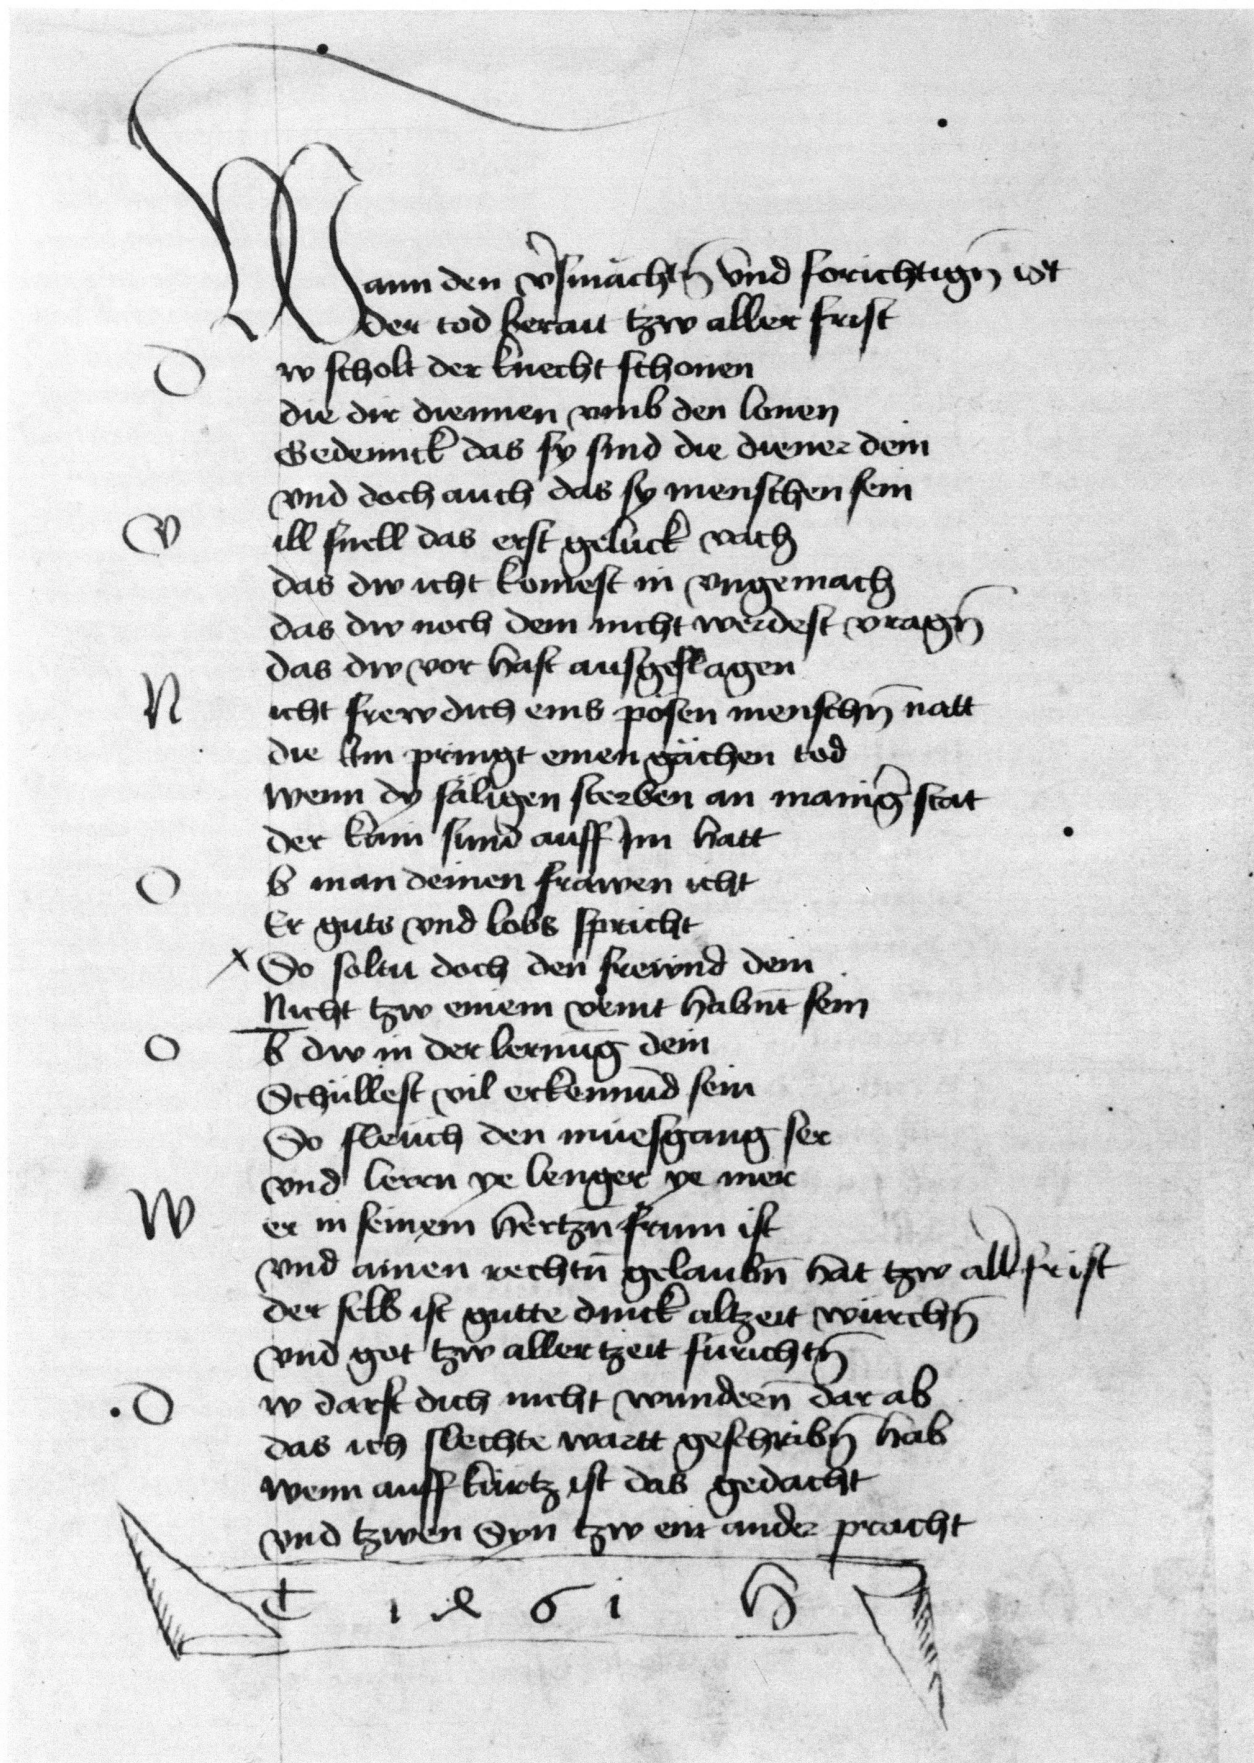 Wann den v̄smächtn̄ vnd forichtign̄ ist
der tod berait tzw aller frist
Dw scholt der knecht schonen
die dir diennen vmb den lonen
Gedennck das sy sind die diener dein
vnd doch auch das sy menschen sein
Vill snell das erst gelück vach
das dw icht komest in vngemach
das dw noch dem nicht werdest vragn̄
das dw vor hast ausgeslagen
Nicht frew dich eins pösen menschn̄ natt
die Im pringt einen gächen tod
wenn dy säligen sterben an maniḡ stat
der kain sund auff Im hatt
Ob man deinen frawen icht
Er guts vnd lobs spricht
So soltu doch den frewnd dein
Nicht tzw einem veint habnt̄ sein
Ob dw in der lernūg dein
Schüllest vil erkennūd sein
So fleuch den müesgang ser
vnd lern ye lenger ye mer
Wer in seinem hertzn̄ frum ist
vnd ainen rechtn̄ gelaubn̄ hat tzw all̄ frist
der selb ist gutte dinck altzeit würchn̄
vnd got tzw aller tzeit fürichtn̄
Dw darft dich nicht wundern̄ dar ab
das ich slechte wartt geschribn̄ hab
wenn auff kürtz ist das gedacht
vnd tzwen Syn tzw ein ander pracht
T 1 4 6 1 H